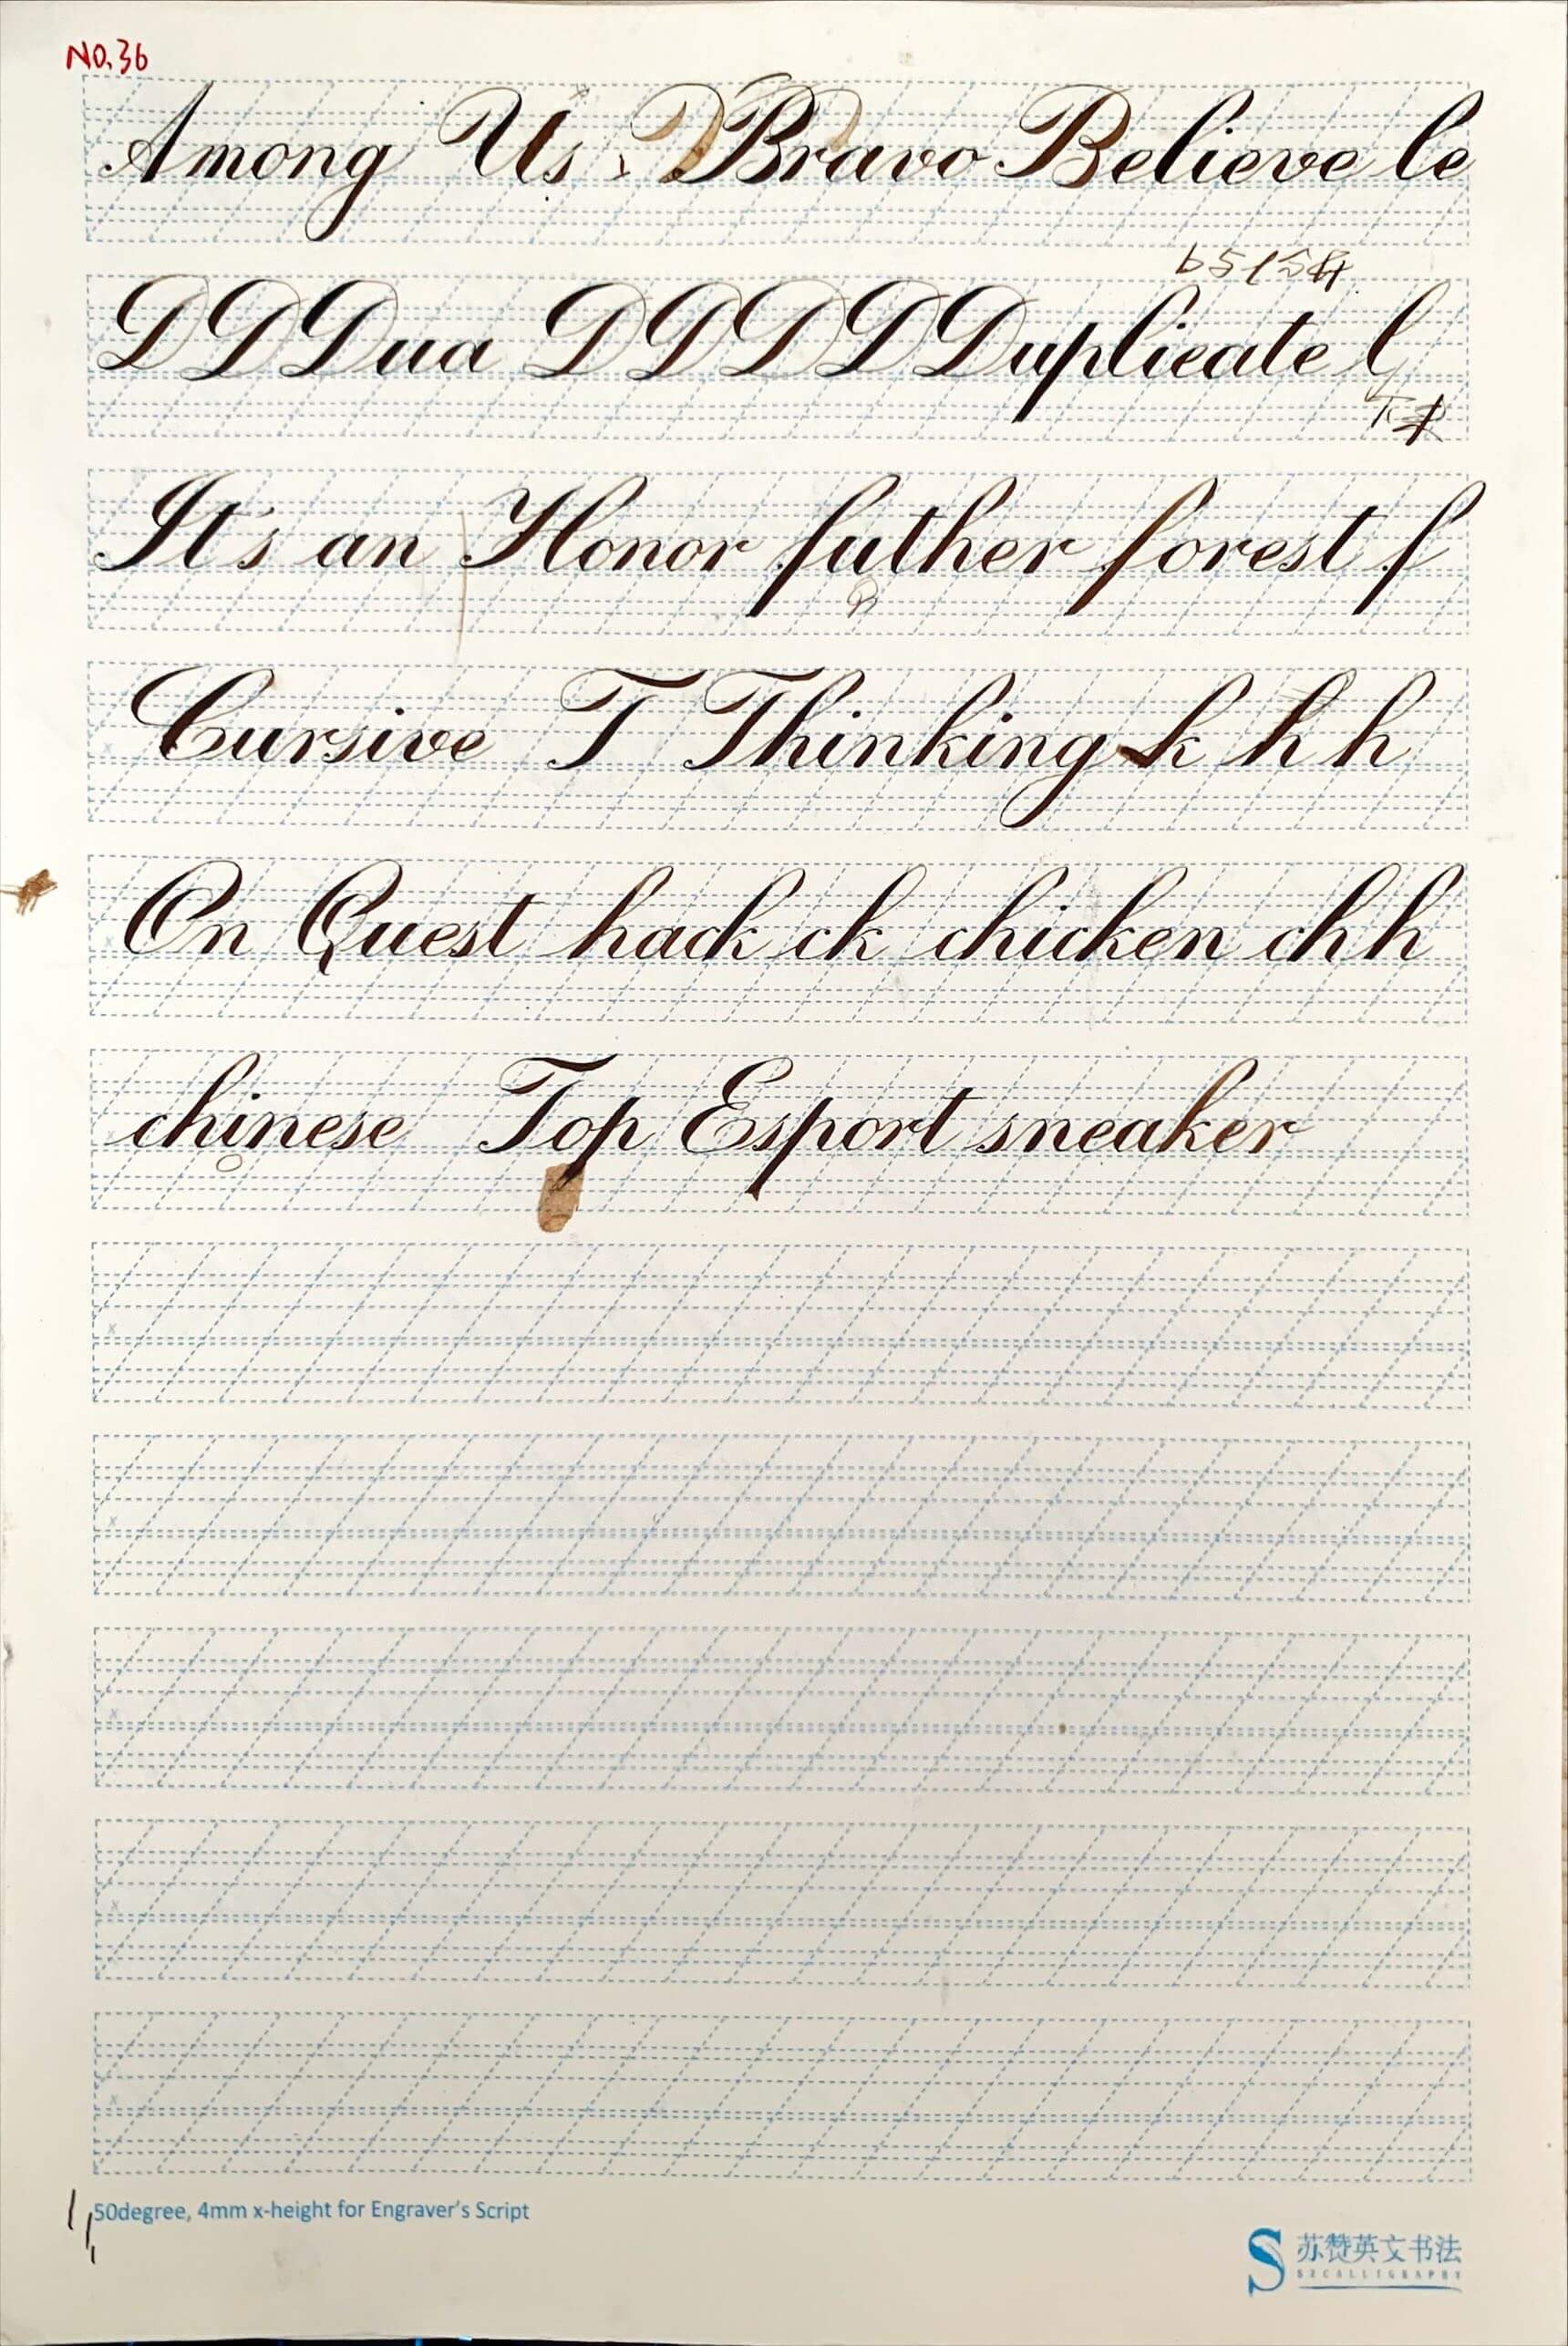 No.36
Among Us. D Bravo Believe le
b与l分析
D D Dua D D D D Duplicate l
It's an Honor father forest f
Cursive T Thinking k h h
On Quest hack ck chicken ch h
chinese Top Esport sneaker
50degree, 4mm x-height for Engraver's Script
苏赞英文书法
SZCALLIGRAPHY